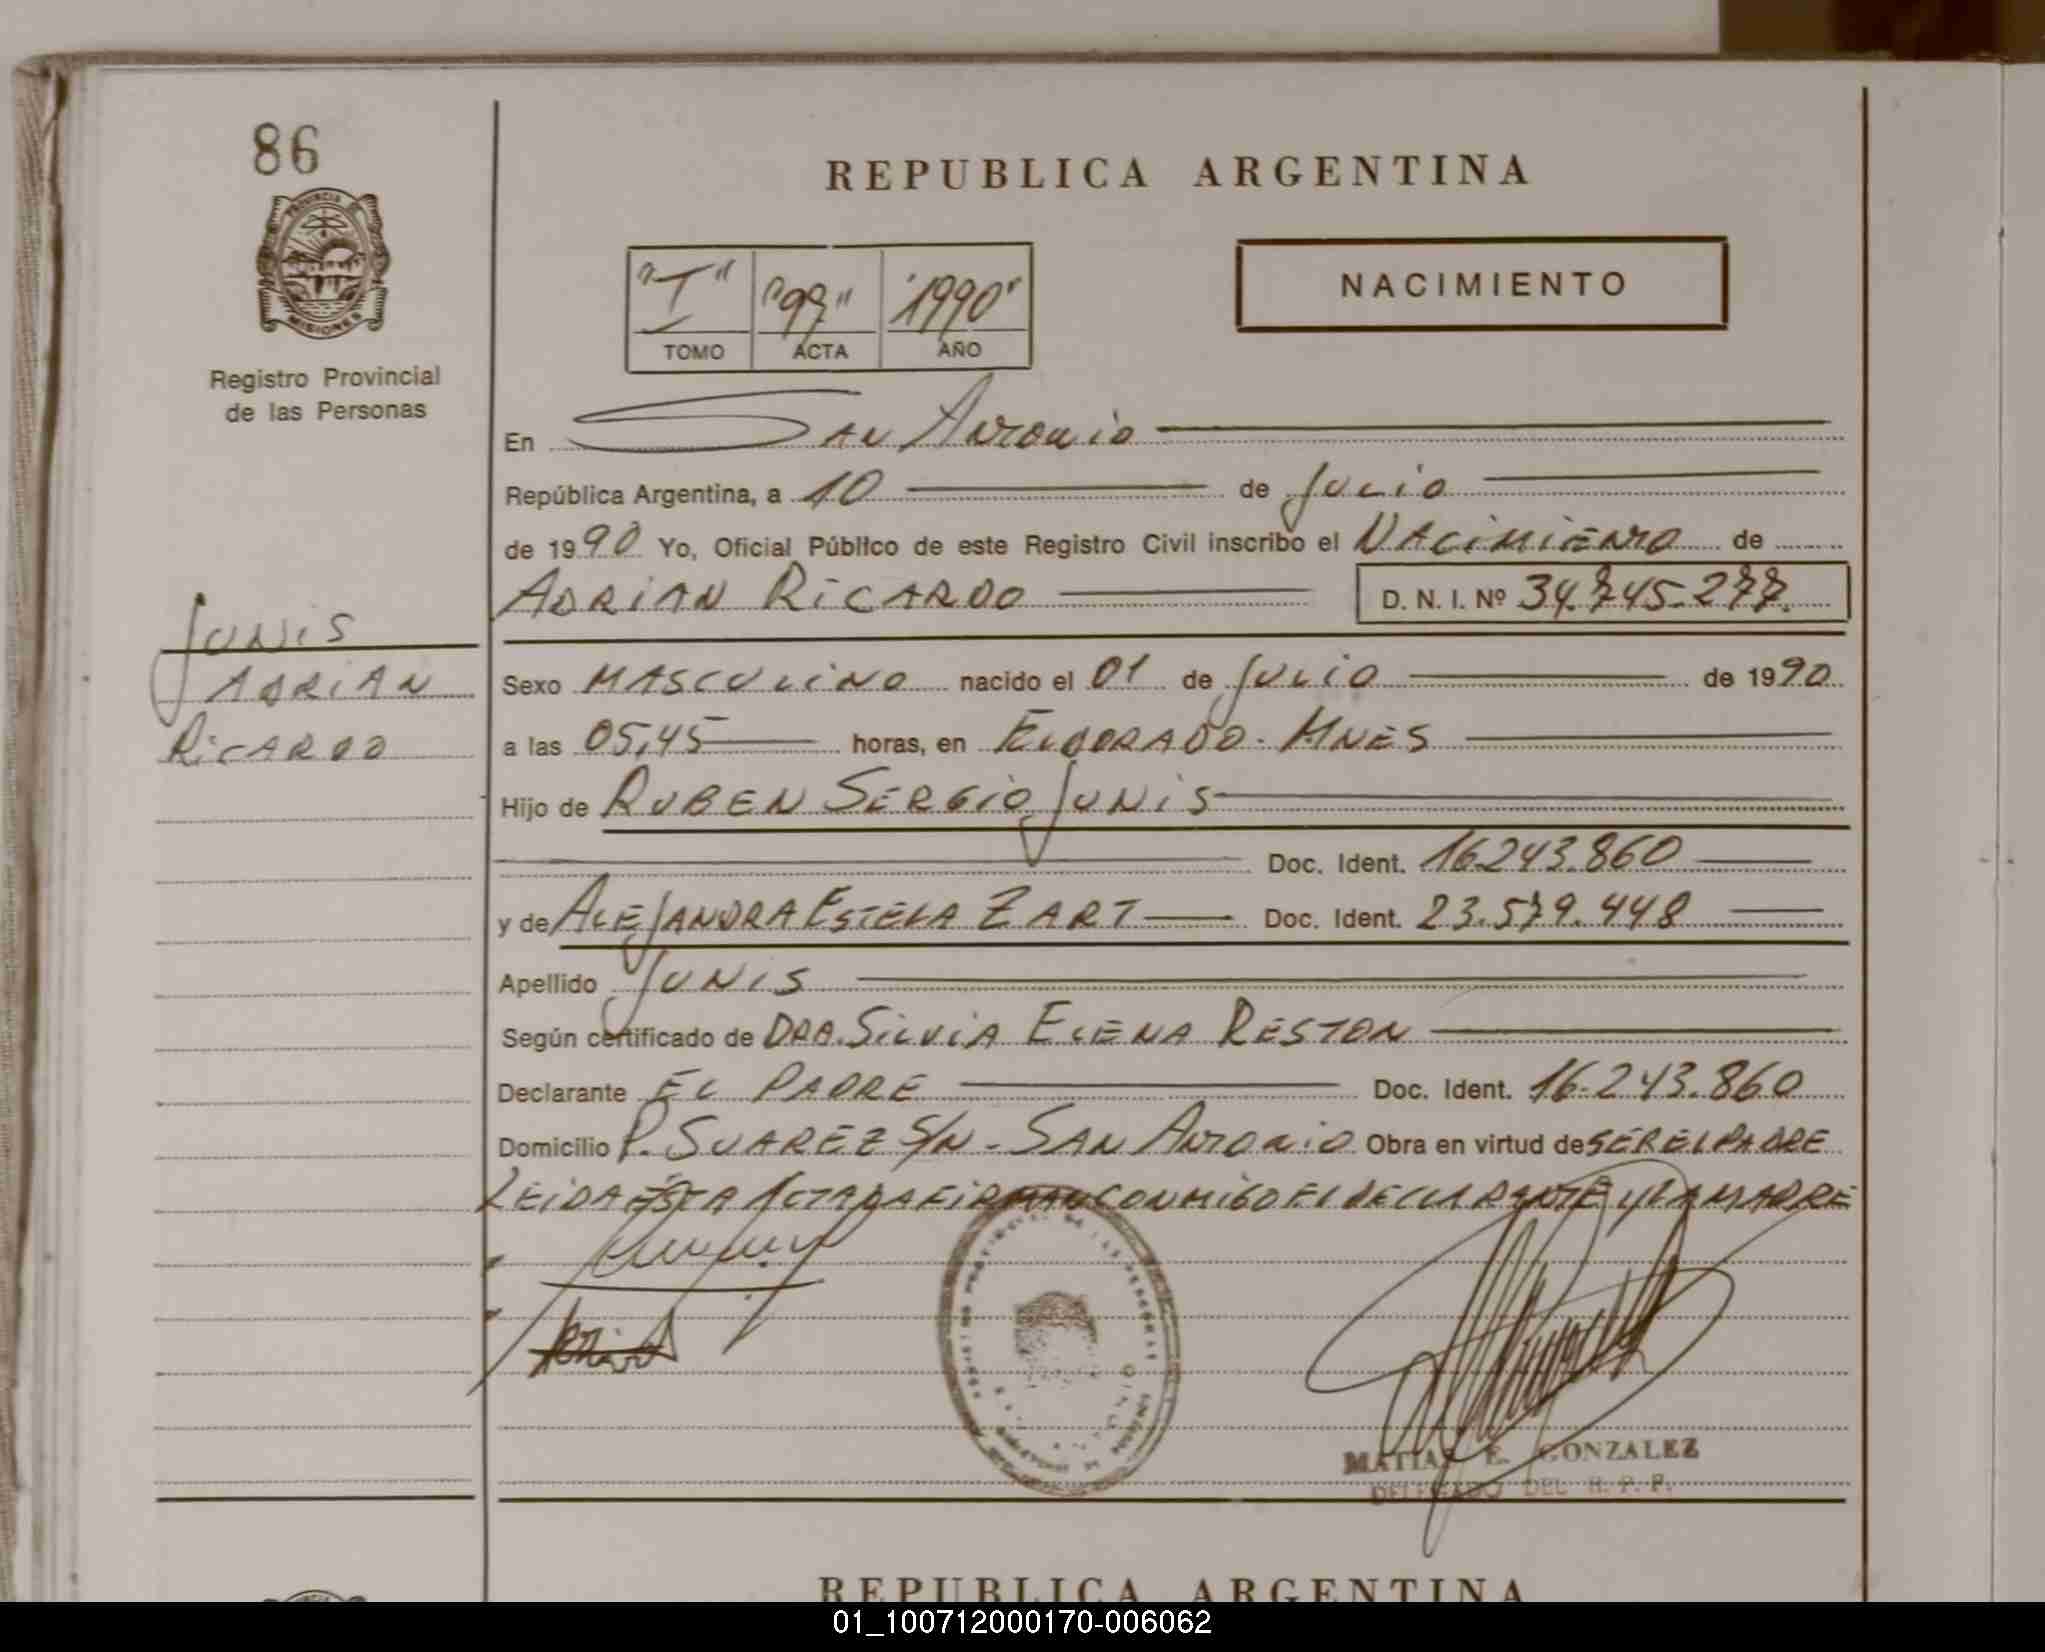 86
PROVINCIA DE
MISIONES
Registro Provincial
de las Personas
REPUBLICA ARGENTINA
"I" "97" "1990"
TOMO ACTA AÑO
NACIMIENTO
En San Antonio
República Argentina, a 10 de Julio
de 1990 Yo, Oficial Público de este Registro Civil inscribo el Nacimiento de
ADRIAN RICARDO D. N. I. Nº 34.745.277.
JUNIS
ADRIAN
RICARDO
Sexo MASCULINO nacido el 01 de Julio de 1990
a las 05,45 horas, en ELDORADO - MNES
Hijo de RUBEN SERGIO JUNIS
Doc. Ident. 16.243.860
y de ALEJANDRA ESTELA ZART Doc. Ident. 23.579.448
Apellido JUNIS
Según certificado de DRA. SILVIA ELENA RESTON
Declarante EL PADRE Doc. Ident. 16.243.860
Domicilio P. SUAREZ S/N - SAN ANTONIO Obra en virtud de SER EL PADRE
LEIDA ESTA ACTA LA FIRMAN CONMIGO EL DECLARANTE Y LA MADRE
MATIAS E. GONZALEZ
DELEGADO DEL R. P. P.
REPUBLICA ARGENTINA
01_100712000170-006062